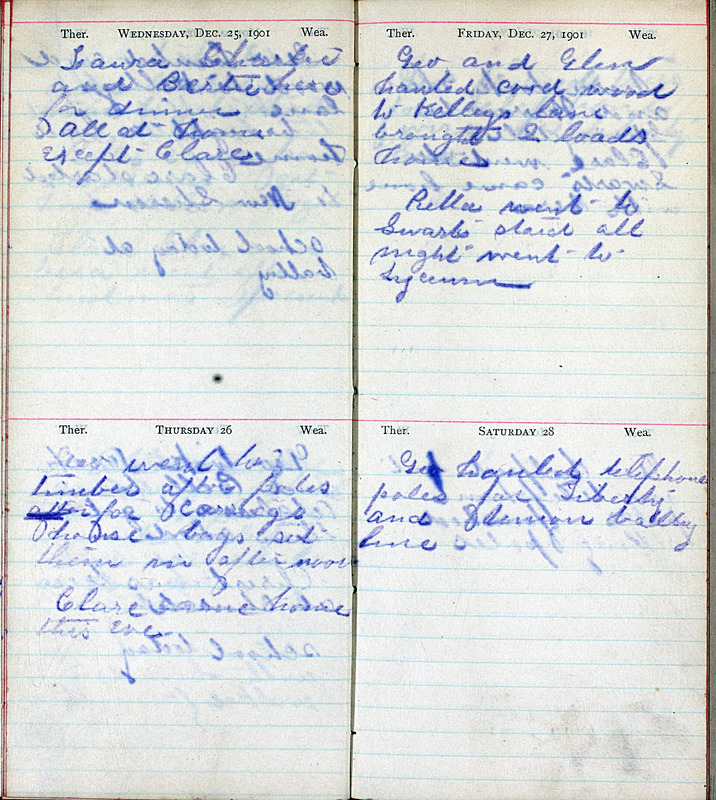 Ther. WEDNESDAY, DEC. 25, 1901 Wea.
Laura Charlie
and Bertie here
for dinner
all at home
except Clare
Ther. THURSDAY 26 Wea.
Geo went to
timber after poles
for Carriage
house boys set
them in afternoon
Clare came home
this Eve
Ther. FRIDAY, DEC. 27, 1901 Wea.
Geo and Glen
hauled cord wood
to Kelleys lane
brought 2 loads
home
Rella went to
Swarts staid all
night went to
Lyceum
Ther. SATURDAY 28 Wea.
Geo hauled telephone
poles for Liberty
and valley
line